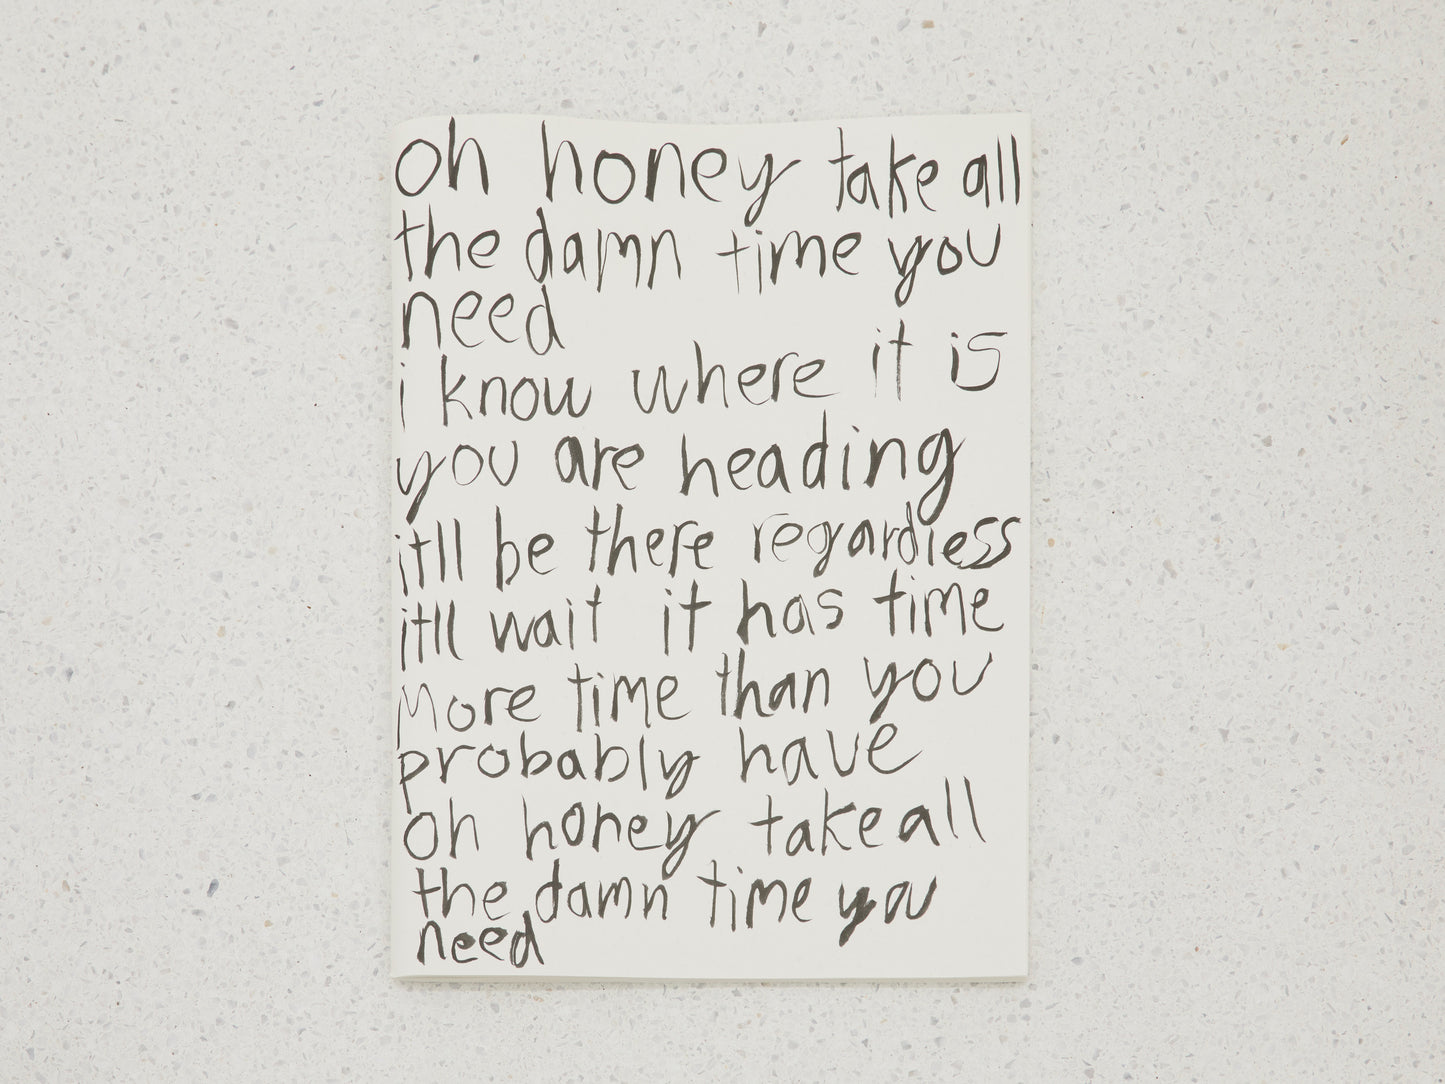 oh honey take all
the damn time you
need
i know where it is
you are heading
itll be there regardless
itll wait it has time
More time than you
probably have
oh honey take all
the damn time you
need